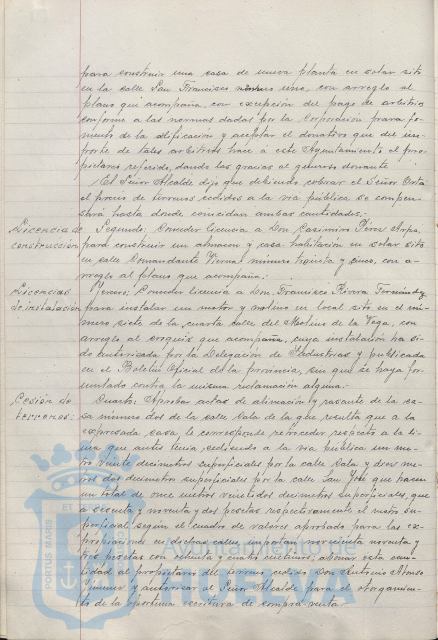 para construir una casa de nueva planta en solar sito
en la calle San Francisco número uno, con arreglo al
plano que acompaña, con excepción del pago de arbitrios
conforme a las normas dadas por la Corporación para fo-
mento de la edificación y aceptar el donativo que del im-
porte de tales arbitrios hace a este Ayuntamiento el pro-
pietario referido, dando las gracias al generoso donante.
El Señor Alcalde dijo que debiendo cobrar el Señor
el precio de terrenos cedidos a la vía pública se compen-
sará hasta donde coincidan ambas cantidades.
Licencia de construcción
Segundo: Conceder licencia a Don Casimiro Pérez
para construir un almacen y casa habitación en solar sito
en calle Comandante Vierna, número treinta y cinco, con a-
rreglo al plano que acompaña.
Licencias de instalación
Tercero: Conceder licencia a Don Francisco Rivera Fernández
para instalar un motor y molino en local sito en el nú-
mero siete de la cuarta calle del Molino de la Vega, con
arreglo al croquis que acompaña, cuya instalación ha si-
do autorizada por la Delegación de Industrias y publicada
en el Boletín Oficial de la provincia, sin que se haya for-
mulado contra la misma reclamación alguna.
Cesión de terrenos:
Cuarto: Aprobar actas de alineación y rasante de la ca-
sa número dos de la calle Sala de la que resulta que a la
expresada casa le corresponde retroceder respecto a la lí-
nea que antes tenía, cediendo a la vía pública un me-
tro veinte decímetros superficiales por la calle Sala y diez me-
tros dos decímetros superficiales por la calle San José que hacen
un total de once metros veintidós decímetros superficiales, que
a y noventa y dos pesetas respectivamente el metro su-
perficial según el cuadro de valores aprobado para las ex-
propiaciones en dichas calles, importan novecientas noventa y
tres pesetas con y cuatro céntimos; abonar esta can-
tidad al propietario del terreno cedido Don Antonio Alonso
Jiménez y autorizar al Señor Alcalde para el otorgamien-
to de la oportuna escritura de compra-venta.
PORTUS MARIS
Ayuntamiento de
HUELVA